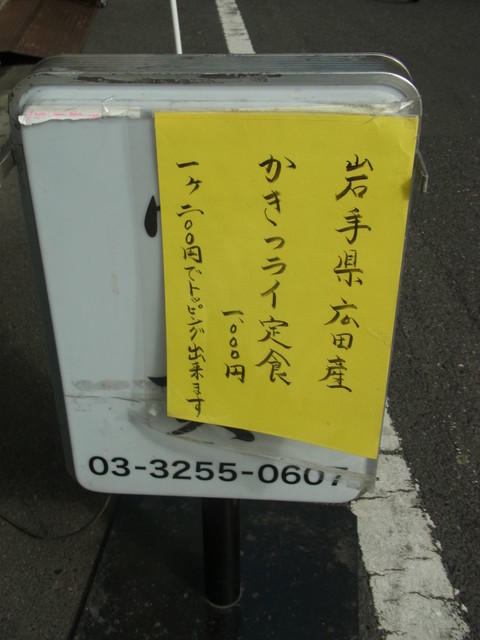 岩手県広田産
かきフライ定食
一、〇〇〇円
一ヶ二〇〇円でトッピングが出来ます
03-3255-0607